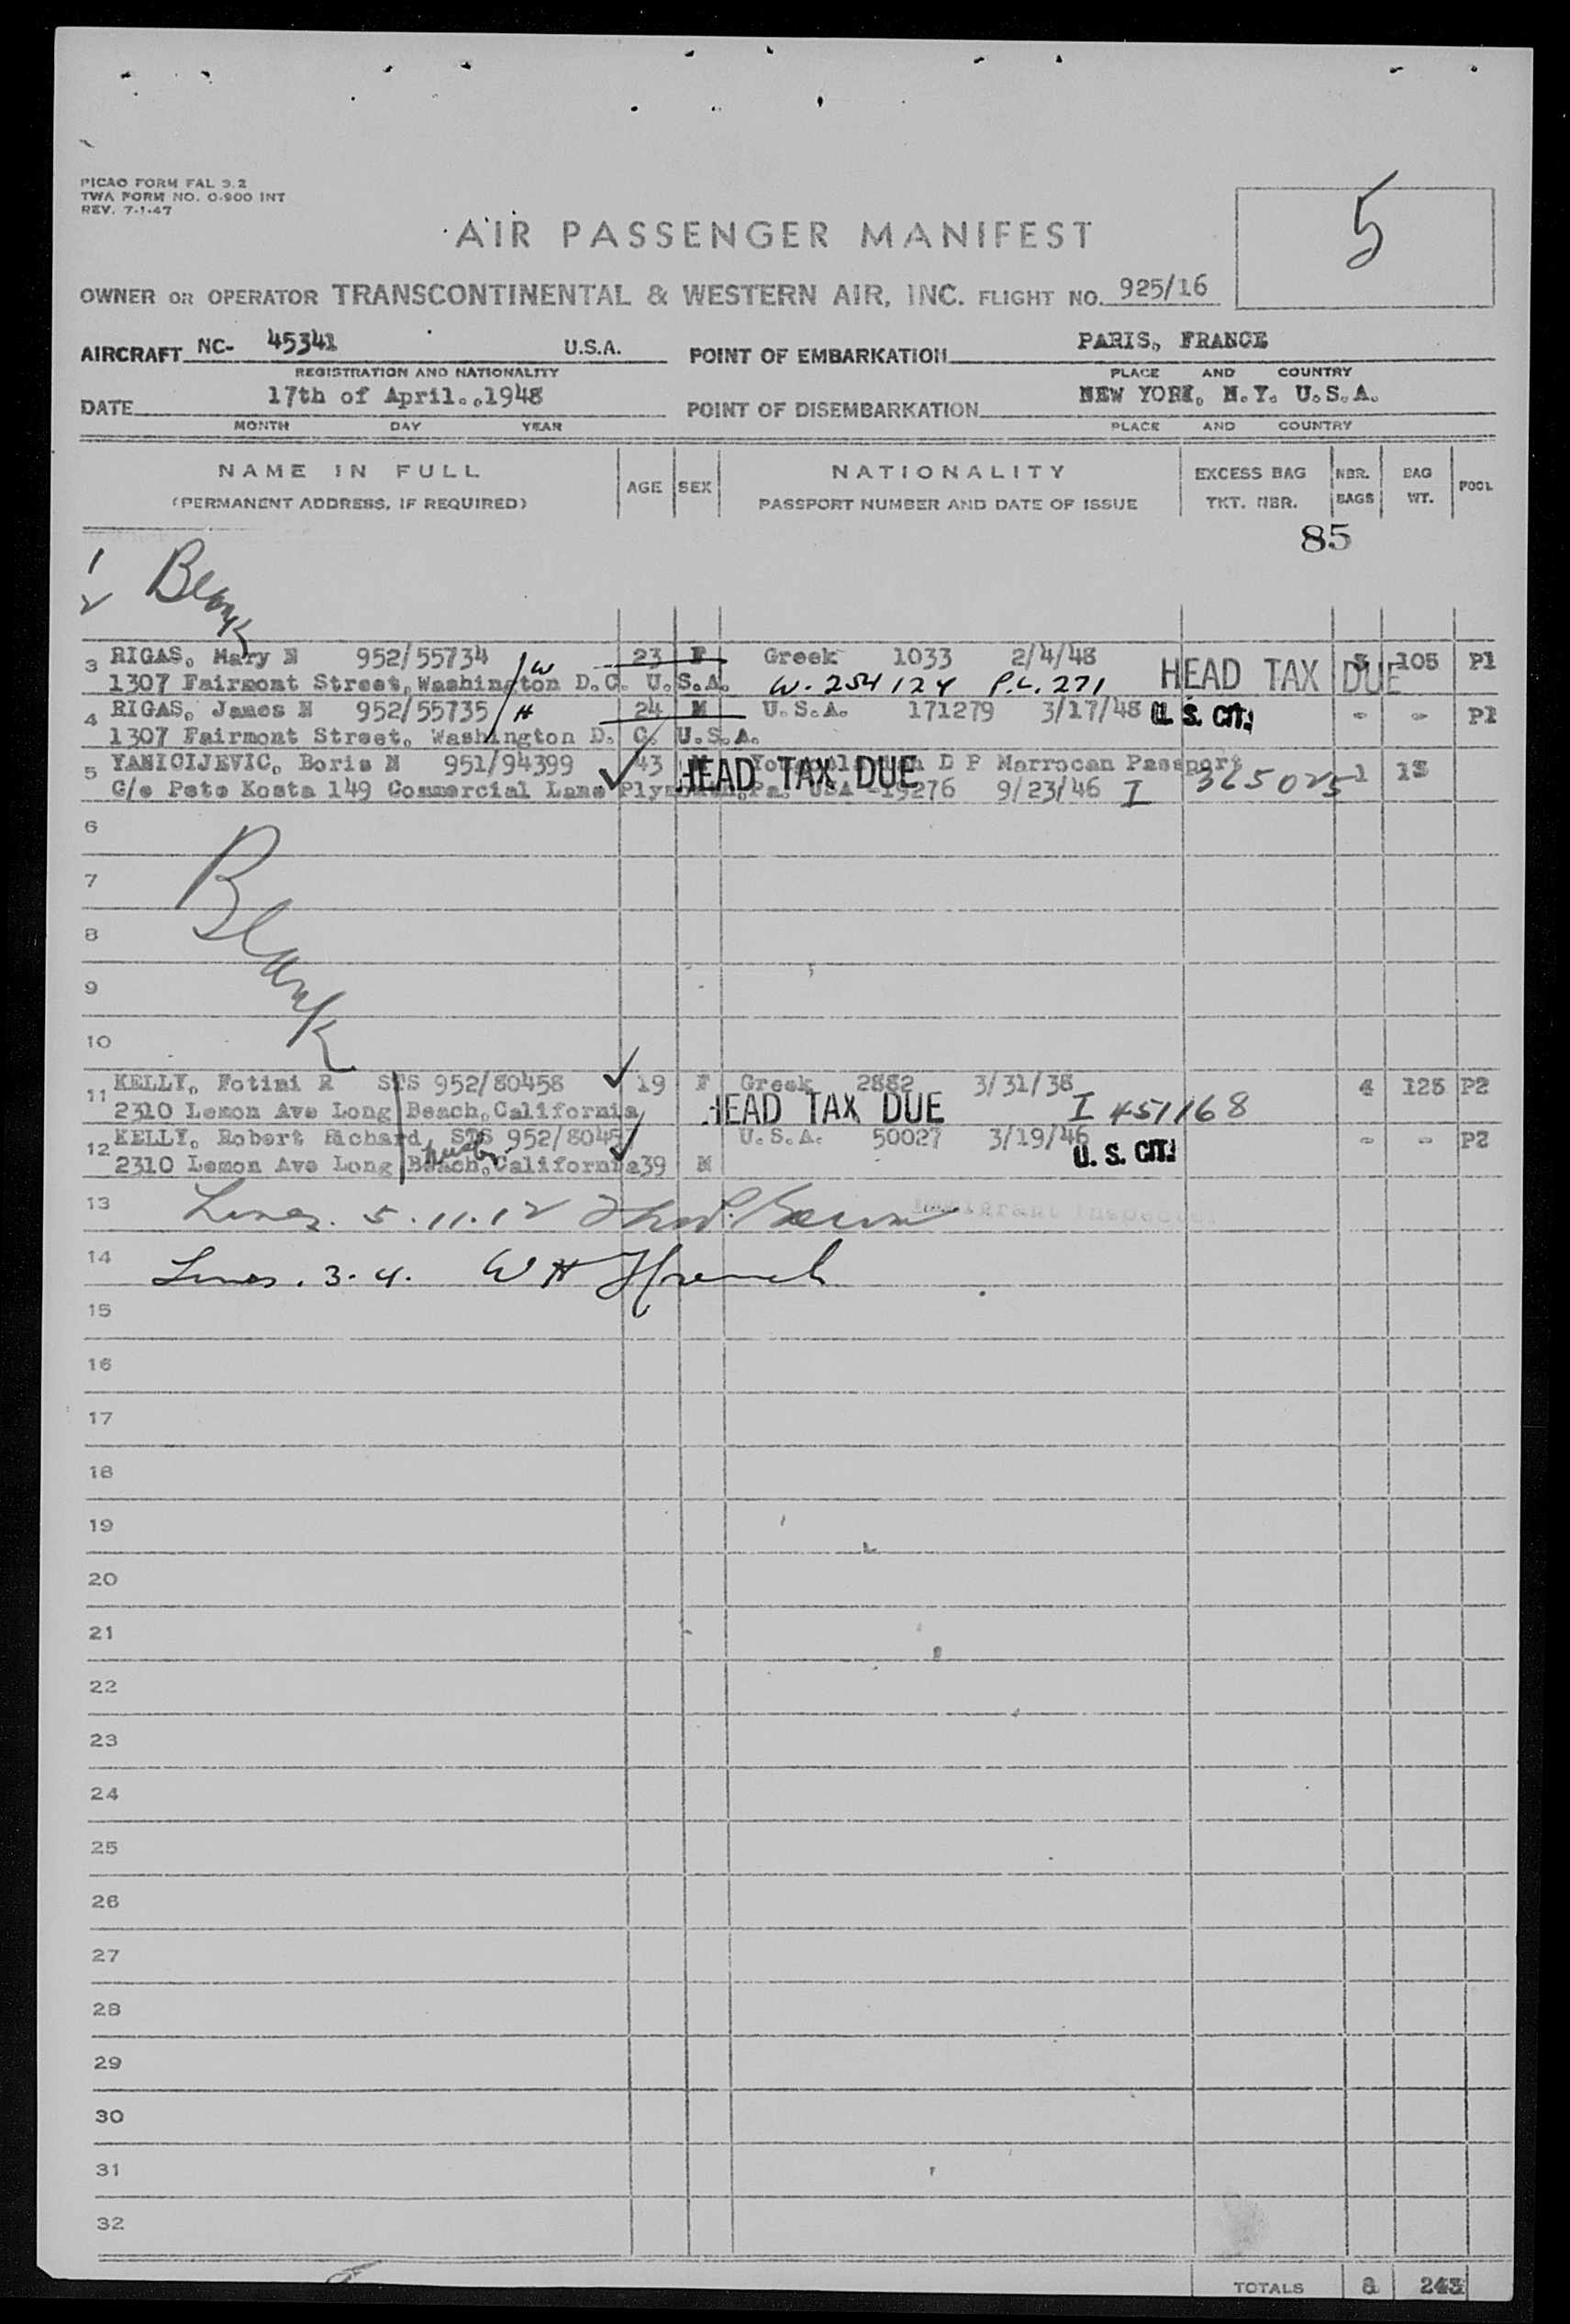 PICAO FORM FAL 3.2
TWA FORM NO. O-900 INT
REV. 7-1-47
5
AIR PASSENGER MANIFEST
OWNER OR OPERATOR TRANSCONTINENTAL & WESTERN AIR, INC. FLIGHT NO. 925/16
AIRCRAFT NC- 45341 U.S.A. POINT OF EMBARKATION PARIS, FRANCE
REGISTRATION AND NATIONALITY PLACE AND COUNTRY
DATE 17th of April.,1948 POINT OF DISEMBARKATION NEW YORK, N.Y. U.S.A.
MONTH DAY YEAR PLACE AND COUNTRY
NAME IN FULL AGE SEX NATIONALITY EXCESS BAG NBR. BAG POOL
(PERMANENT ADDRESS, IF REQUIRED) PASSPORT NUMBER AND DATE OF ISSUE TKT. NBR. BAGS WT.
85
1
2 Blank
3 RIGAS, Mary N 952/55734 W 23 F Greek 1033 2/4/48 HEAD TAX DUE 3 105 P1
1307 Fairmont Street, Washington D.C. U.S.A. W-254124 P.L. 271
4 RIGAS, James N 952/55735 H 24 M U.S.A. 171279 3/17/48 U. S. CIT. - - P1
1307 Fairmont Street, Washington D. C. U.S.A.
5 YANICIJEVIC, Boris N 951/94399 43 HEAD TAX DUE D P Marrocan Passport 1 13
C/o Pete Kosta 149 Commercial Lane Plymouth,Pa. USA -19276 9/23/46 I 365025
6
7
8 Blank
9
10
11 KELLY, Fotini R STS 952/80458 19 F Greek 2882 3/31/38 4 125 P2
2310 Lemon Ave Long Beach,California HEAD TAX DUE I 451168
12 KELLY, Robert Richard, STS 952/80457 U.S.A. 50027 3/19/46 U. S. CIT. - - P2
2310 Lemon Ave Long Beach,California 39 M
13 Lines. 5.11.12 Immigrant Inspector
14 Lines. 3-4. W H French
15
16
17
18
19
20
21
22
23
24
25
26
27
28
29
30
31
32
TOTALS 8 243